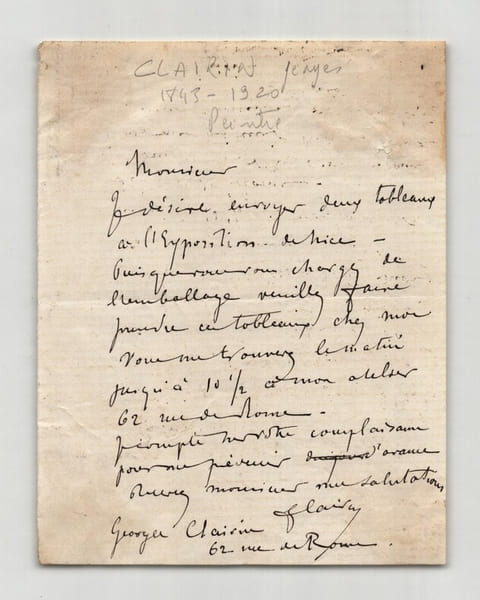 CLAIRIN Georges
1843 - 1920
Peintre
Monsieur
Je désire envoyer deux tableaux
a l'Exposition de Nice -
Puisque vous vous chargez de
l'emballage veuillez faire
prendre ces tableaux chez moi
Vous me trouverez le matin
jusqu'à 10 1/2 a mon atelier
62 rue de Rome -
Je compte sur votre complaisance
pour me prévenir d'avance
Recevez monsieur mes salutations
Clairin
Georges Clairin
62 rue de Rome.